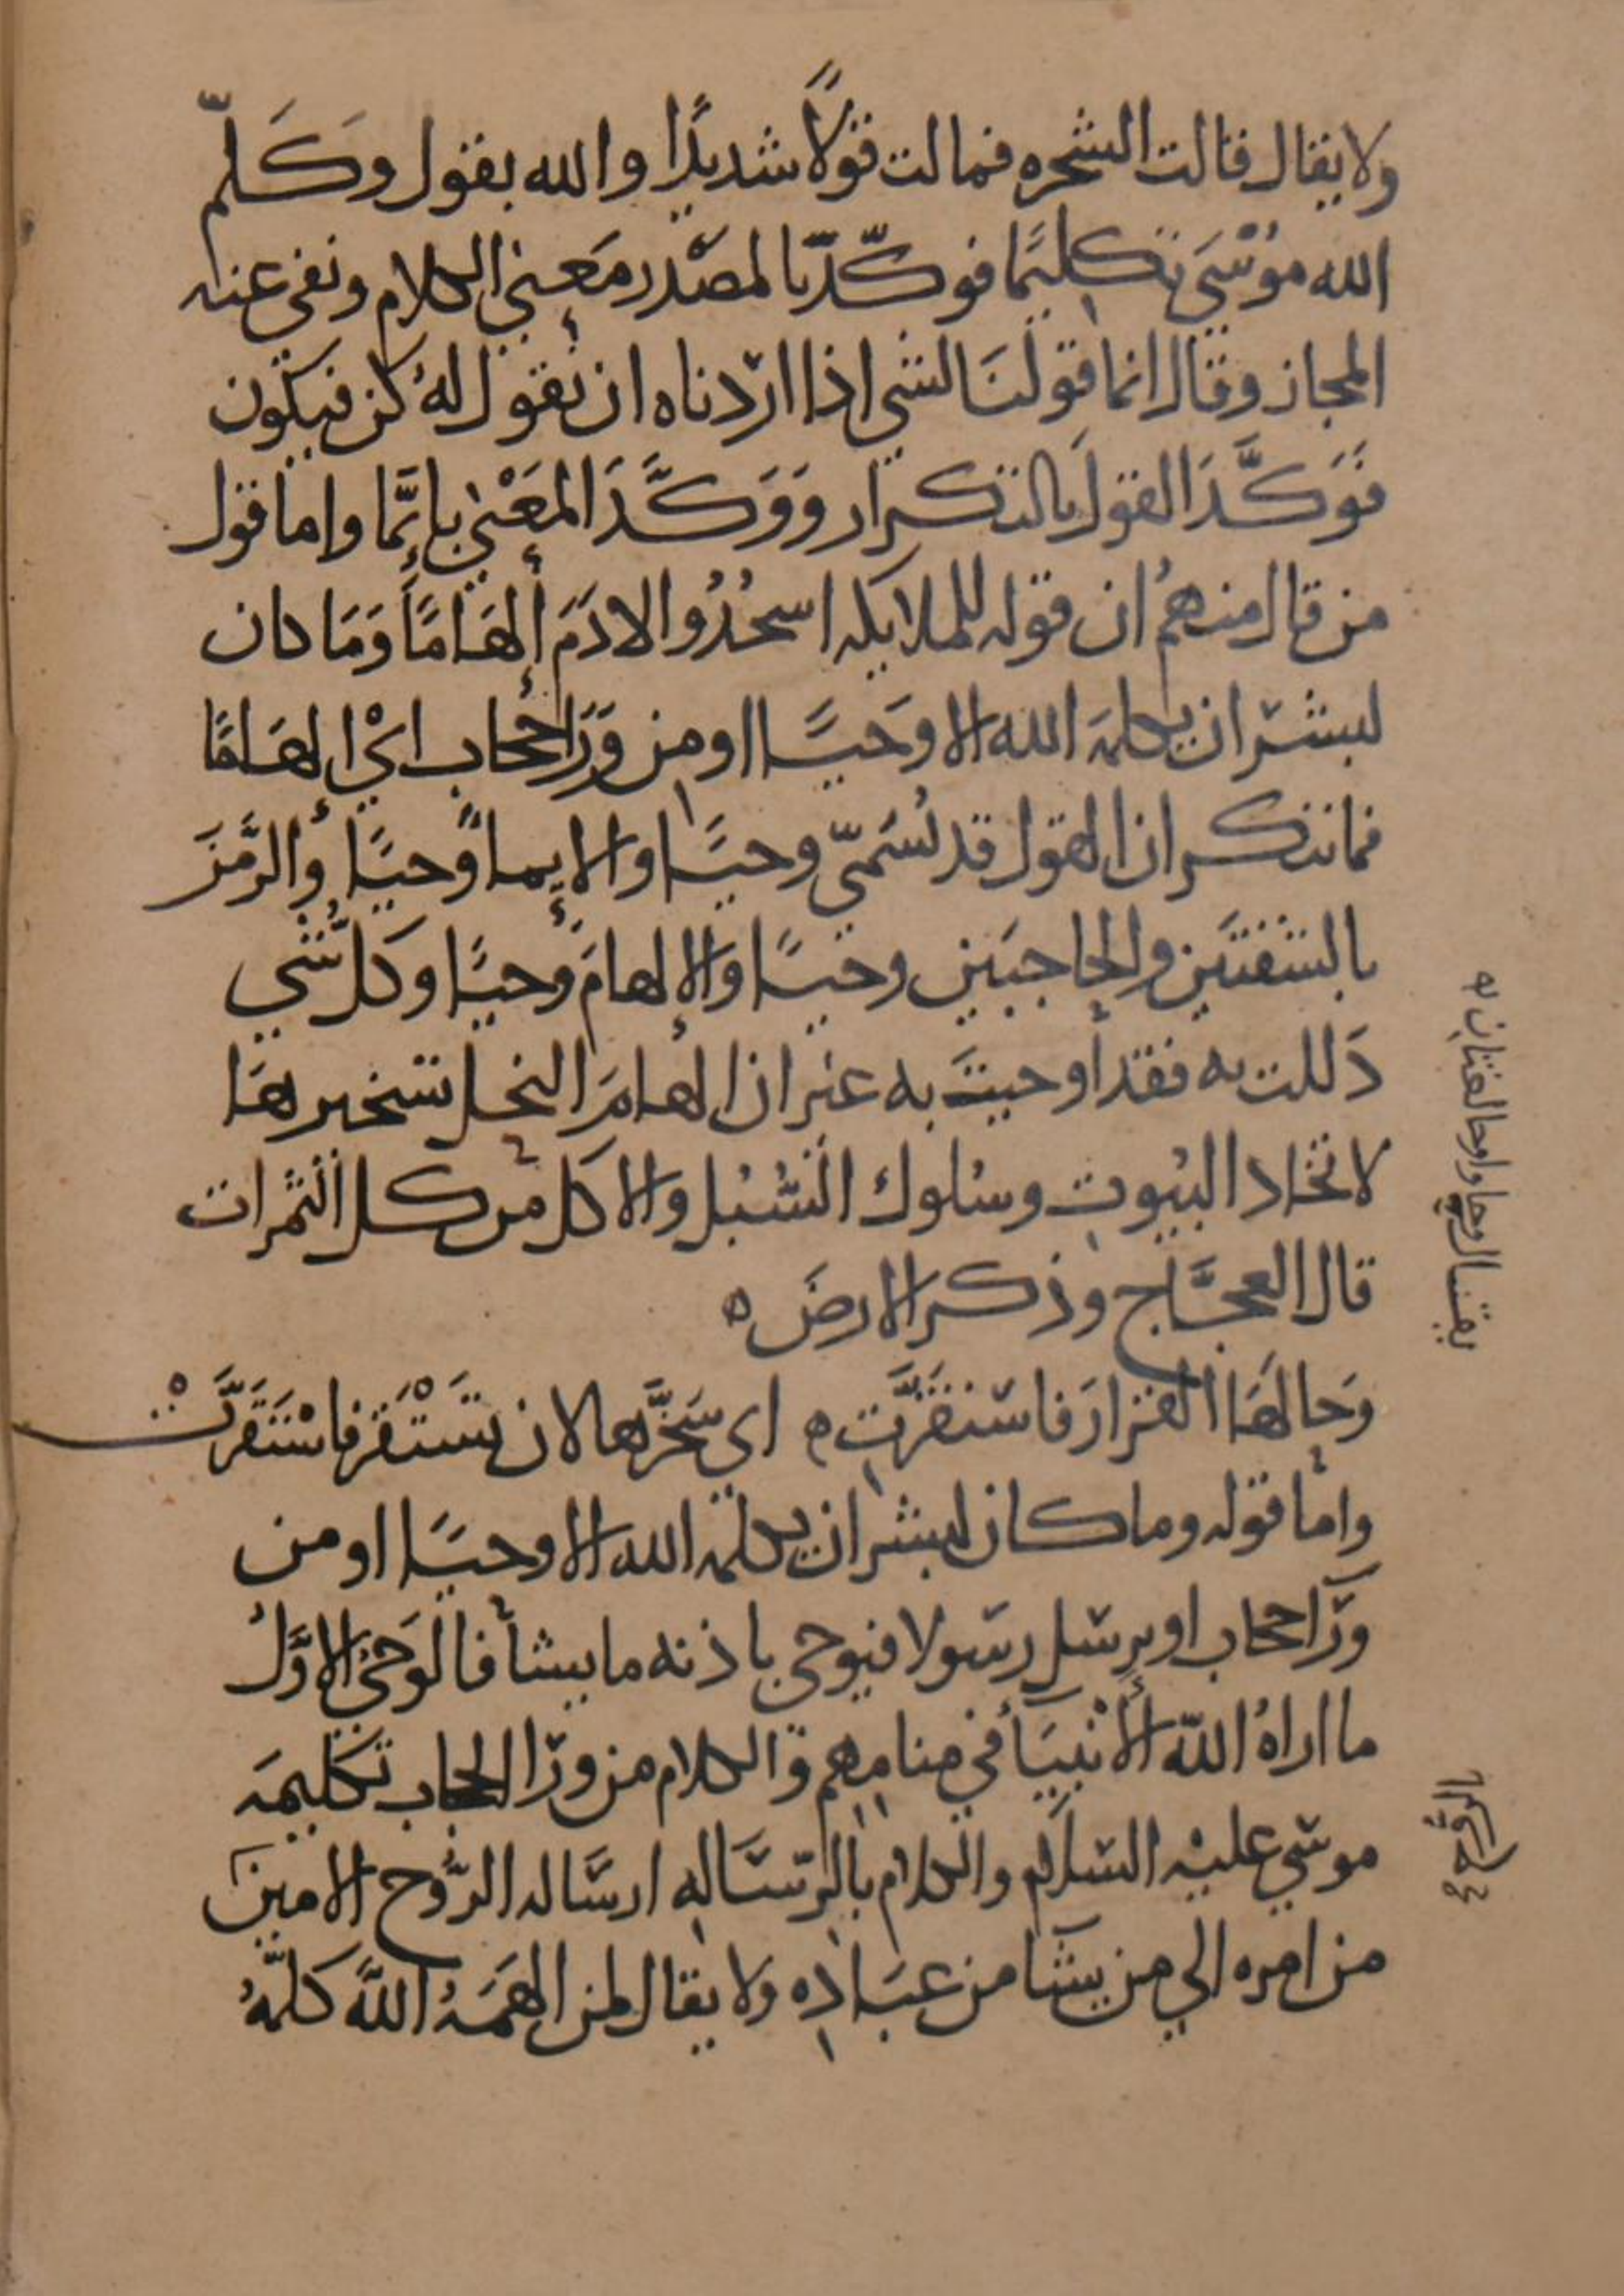 ولا يقال قالت الشجره فمالت قولًا شديدًا والله يقول وَكَلَّم
الله مُوْسَى تكليمًا فوكّد بالمصْدر مَعنى الكلام ونفى عنه
المجاز وقال انما قولنَا لشي اذا اردناه ان نقول لهُ كن فيكون
فَوَكَّدَ القولَ بالتكرار وَوَكَّدَ المَعْنى بإنَّما واما قول
من قال منهمُ ان قوله للملايكه اسجُدُوا لادَمَ إلهَامًا وَمَا كان
لبشر ان يكلمَه الله الا وَحيًا او من وَرَاحجاب ايْ إلهَامًا
فما ننكر ان القول قد نُسَمّى وحيًا والإيماً وحيًا والرَّمزَ
بالشفتَين والحاجبَين وحيًا والإلهامَ وحيًا وكل شي
دَللت به فقد أوحيتَ به غير ان إلهامَ النحل تسخيرهَا
لاتخاد البيُوت وسُلوك السُّبُل والاكل من كل الثمرات
قال العجَّاج وذكر الارضَ ه
وَحا لهَا القرارَ فاستقَرَّتِ ه اي سَخَّرها لان تَسْتَقر فاسْتَقَرَّتْ
وامّا قوله وما كان لبشر ان يكلمه الله الا وحيًا او من
ورَآ حجاب او يرسل رسولا فيوحى باذنه ما يشأ فالوَحىُ الاوَّلُ
ما اراهُ اللّه الأنْبيَآ في منامِهِم والكلام من ورَا الحجاب تكليمَه
موسي عليه السّلام والكلام بالرّسَاله ارسَاله الرُّوح الامينَ
من امره الي من يشَآ من عبَادِه ولا يقال لمن الهَمَهُ اللهُ كلَّمهُ